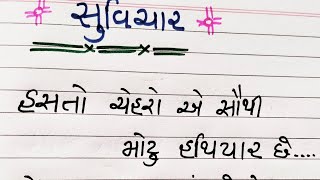 સુવિચાર
હસતો ચેહરો એ સૌથી
મોટુ હથિયાર છે....